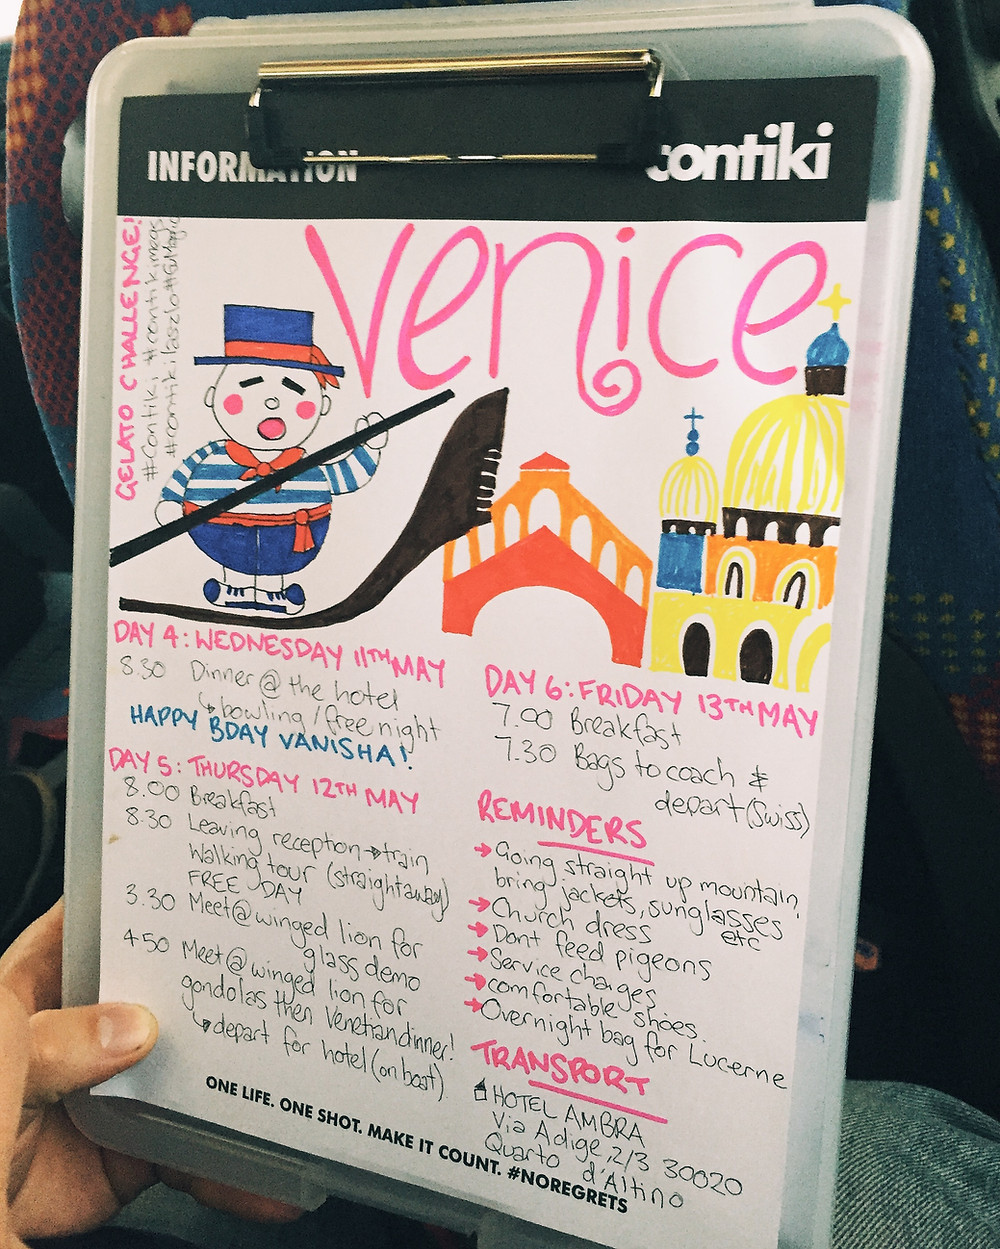 INFORMATION
contiki
GELATO CHALLENGE!
#Contiki #contikimags
#contikilaszlo
Venice
DAY 4: WEDNESDAY 11TH MAY
8.30 Dinner @ the hotel
↳ bowling/free night
HAPPY BDAY VANISHA!
DAY 5: THURSDAY 12TH MAY
8.00 Breakfast
8.30 Leaving reception → train
Walking tour (straightaway)
FREE DAY
3.30 Meet @ winged lion for
glass demo
4.50 Meet @ winged lion for
gondolas then Venetian dinner!
↳ depart for hotel (on boat)
DAY 6: FRIDAY 13TH MAY
7.00 Breakfast
7.30 Bags to coach &
depart (Swiss)
REMINDERS
→ Going straight up mountain,
bring jackets, sunglasses
etc
→ Church dress
→ Dont feed pigeons
→ Service charges
→ comfortable shoes.
→ Overnight bag for Lucerne
TRANSPORT
HOTEL AMBRA
Via Adige, 2/3 30020
Quarto d'Altino
ONE LIFE. ONE SHOT. MAKE IT COUNT. #NOREGRETS